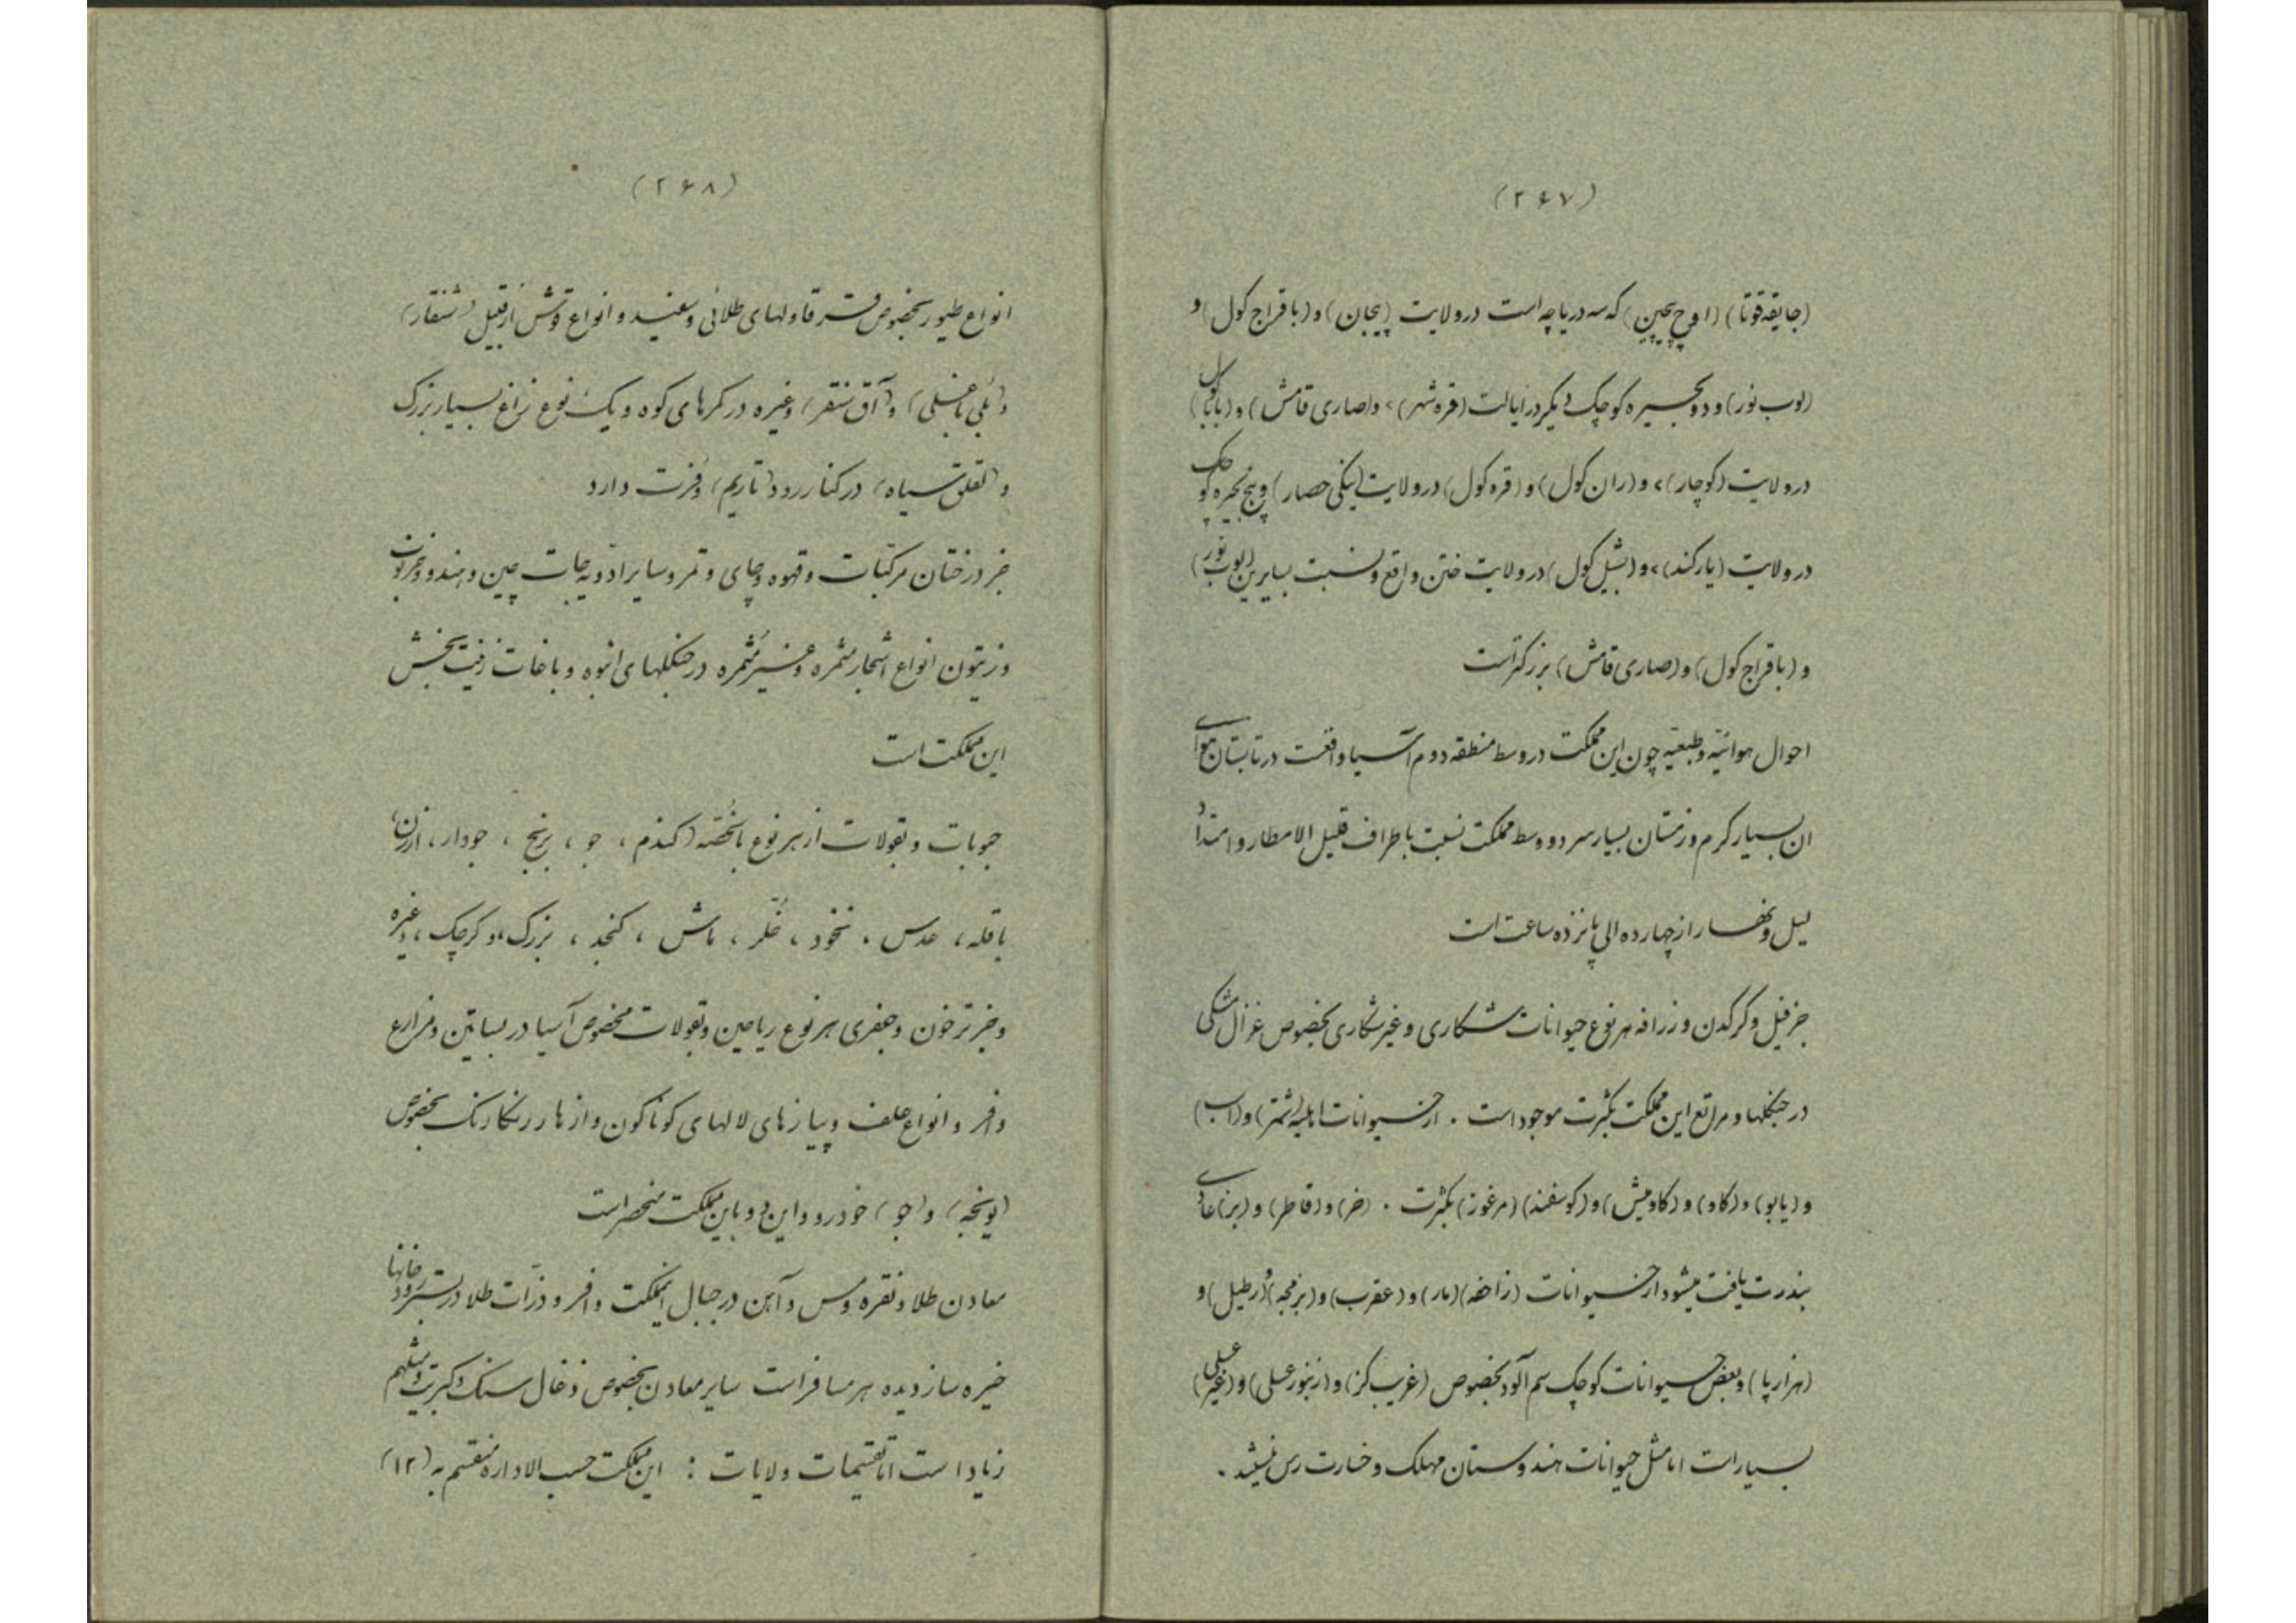 (۲۶۷)
(جایقه قوتا) (اوچ پیچین) که سه دریاچه است در ولایت (پیجان) و (باقراج کول) و
(لوب نور) و دو بحیره کوچک دیگر در ایالت (قره شهر)، و (صاری قامش) و (باباکول)
در ولایت (کوچار)، و (ران کول) و (قره کول) در ولایت (ینکی حصار) و پنج بحیره کوچک
در ولایت (یارکند)، و (بشیل کول) در ولایت ختن واقع و نسبت بسایرین (لوب نور)
و (باقراج کول) و (صاری قامش) بزرکتر است
احوال هوائیه و طبیعیه چون این مملکت در وسط منطقه دوم آسیا واقعست در تابستان هوای
ان بسیار کرم و زمستان بسیار سرد و وسط مملکت نسبت باطراف قلیل الامطار و امتداد
لیل و نهار از چهارده الی پانزده ساعت است
جز فیل و کرکدن و زرافه هر نوع حیوانات شکاری و غیر شکاری بخصوص غزال مشکی
در جنکلها و مراتع این مملکت بکثرت موجود است . از حیوانات اهلیه (شتر) و (اسب)
و (یابو) و (کاو) و (کاومیش) و (کوسفند) (مرغوز) بکثرت . (خر) و (قاطر) و (بز) عادی
بندرت یافت میشود از حیوانات (زاحفه) (مار) و (عقرب) و (بزمجه) و (رطیل) و
(هزار پا) و بعض حیوانات کوچک سم آلود بخصوص (غریب کز) و (زنبور عسلی) و (غیر عسلی)
بسیار است اما مثل حیوانات هندوستان مهلک و خسارت رس نیستند .
(۲۶۸)
انواع طیور بخصوص قرقاولهای طلائی و سفید و انواع قوش از قبیل (شنقار)
و آق سنقر) و غیره در کمرهای کوه و یک نوع زاغ بسیار بزرک
و (لقلق سیاه) در کنار رود (تاریم) وفرت دارد
جز درختان مرکبات و قهوه و چای و تمر و سایر ادویه جات چین و هند و خرنوب
و زیتون انواع اشجار مثمره و غیر مثمره در جنکلهای انبوه و باغات زینت بخش
این مملکت است
حبوبات و بقولات از هر نوع باخصه (کندم ، جو ، برنج ، جودار ، ارزن،
باقله ، عدس ، نخود ، خلر ، ماش ، کنجد ، بزرک، و کرچک ، و غیره
و جز ترخون و جعفری هر نوع ریاحین و بقولات مخصوص آسیا در بساتین و مزارع
وافر و انواع علف و پیازهای لالهای کوناکون و ازهار رنکارنک بخصوص
(یونجه) و (جو) خودرو و این دو باین مملکت منحصر است
معادن طلا و نقره و مس و آهن در جبال اینملکت وافر و ذرات طلا در بستر رودخانها
خیره ساز دیده هر مسافر است سایر معادن بخصوص ذغال سنک و کبریت و یشم
زیاد است اما تقسیمات ولایات : این مملکت حسب الاداره منقسم به (۱۲)